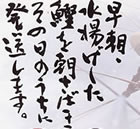 早朝、
水揚げした
鰹を朝さばき
その日のうちに
発送します。